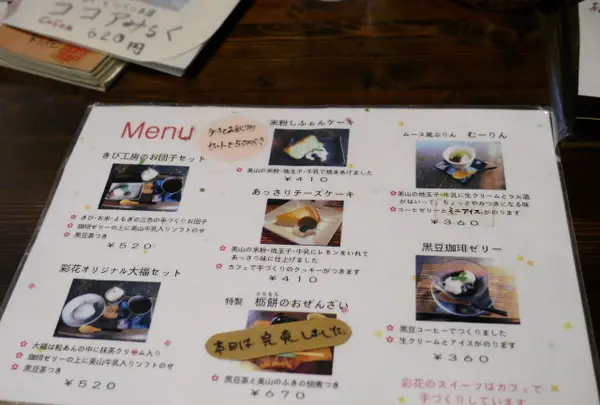 ココアみるく
cocoa
620円
Menu
きび工房のお団子セット
きび・お米・よもぎの三色の手づくりお団子
珈琲ゼリーの上に美山牛乳入りソフトのせ
黒豆茶つき
¥520
彩花オリジナル大福セット
大福は粒あんの中に抹茶クリーム入り
珈琲ゼリーの上に美山牛乳入りソフトのせ
黒豆茶つき
¥520
セットで50円引き
米粉しふぉんケーキ
美山の米粉・地玉子・牛乳で焼きあげました
¥410
あっさりチーズケーキ
美山の米粉・地玉子・牛乳にレモンをいれて
あっさり味に仕上げました
カフェで手づくりのクッキーがつきます
¥410
特製 栃餅のおぜんざい
とちもち
本日は完売しました。
黒豆茶と美山のふきの佃煮つき
¥670
ムース風ぷりん むーりん
美山の地玉子・牛乳に生クリームとラム酒
がはいって、ちょっとやみつきになる味
コーヒーゼリーとミニアイスがのります
¥360
黒豆珈琲ゼリー
黒豆コーヒーでつくりました
生クリームとアイスがのります
¥360
彩花のスイーツはカフェで
手づくりしています